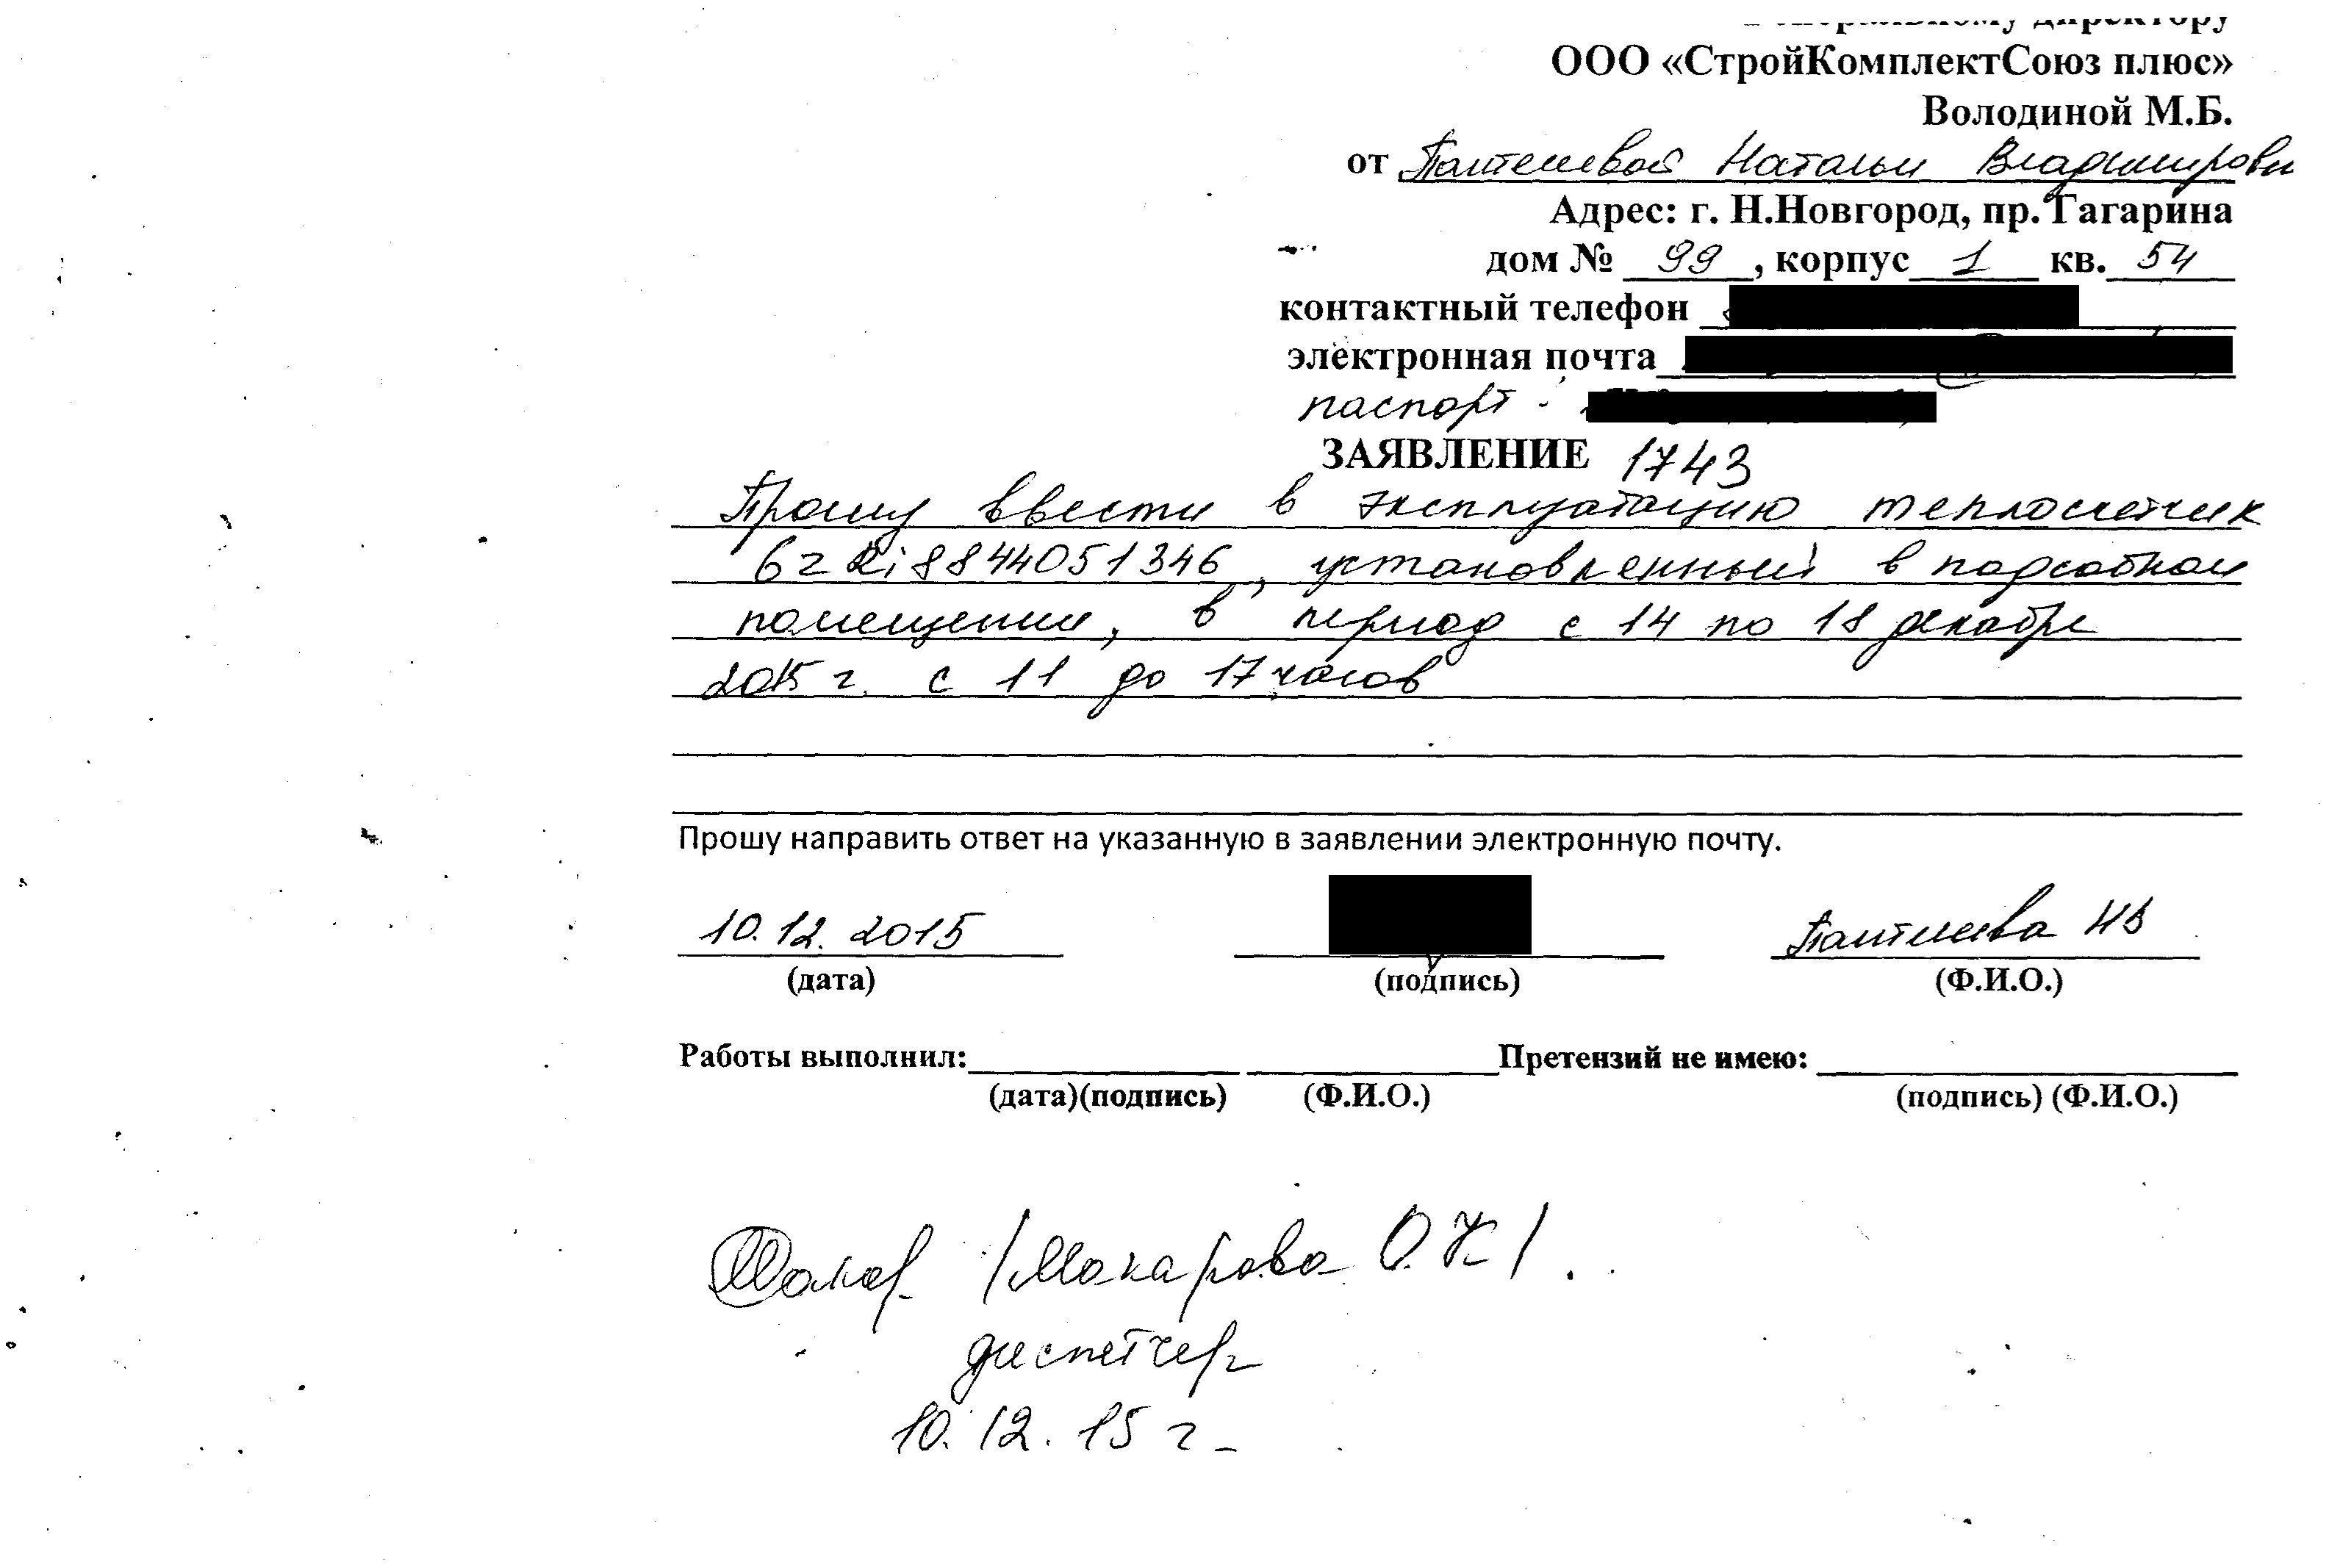 Генеральному директору
ООО «СтройКомплектСоюз плюс»
Володиной М.Б.
от Пантелеевой Натальи Владимировн
Адрес: г. Н.Новгород, пр. Гагарина
дом № 99, корпус 1 кв. 54
контактный телефон
электронная почта
паспорт -
ЗАЯВЛЕНИЕ 1743
Прошу ввести в эксплуатацию теплосчетчик
8844051346, установленный в подсобном
помещении, в период с 14 по 18 декабря
2015 г. с 11 до 17 часов
Прошу направить ответ на указанную в заявлении электронную почту.
10.12.2015 НВ
(дата) (подпись) (Ф.И.О.)
Работы выполнил: Претензий не имею:
(дата)(подпись) (Ф.И.О.) (подпись) (Ф.И.О.)
/Макарова О.К/.
диспетчер
10.12.15 г.